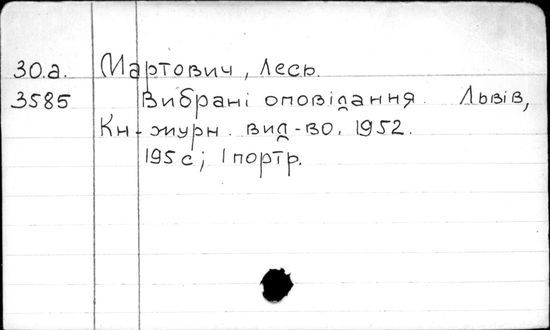 30.а. Мартович, Лесь.
3585 Вибрані оповідання. Львів,
Кн-журн. вид-во. 1952.
195 с; 1 портр.